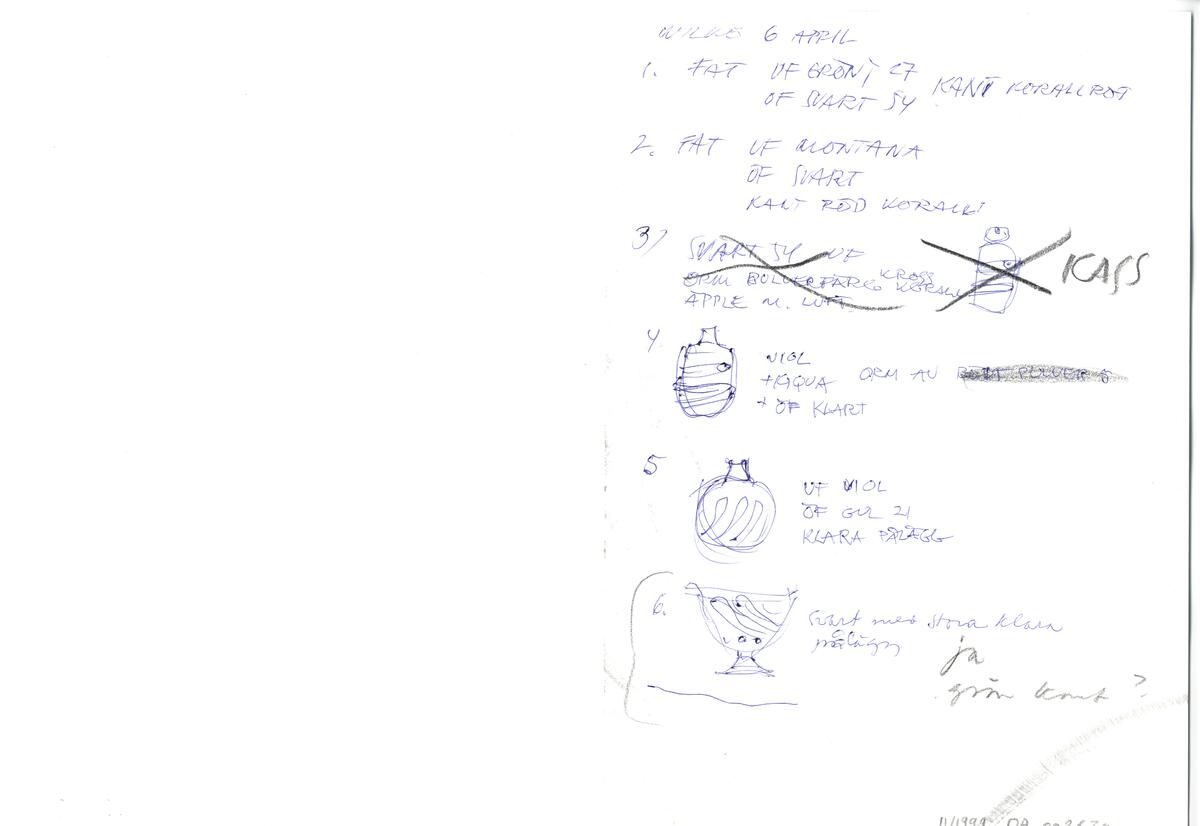 WILKE 6 APRIL
1. FAT UF GRÖNT 27 KANT KORALLRÖT
ÖF SVART 54
2. FAT UF MONTANA
ÖF SVART
KANT RÖD KORALL
3) SVART 54 UF
ORM KROSS KORALL
ÄPPLE M. LUFT
KASS
4 VIOL
ORM AV
+ ÖF KLART
5
UF VIOL
ÖF GUL 21
KLARA PÅLÄGG
6. Svart med stora klara
pålägg
ja
grön kant?
11/1999